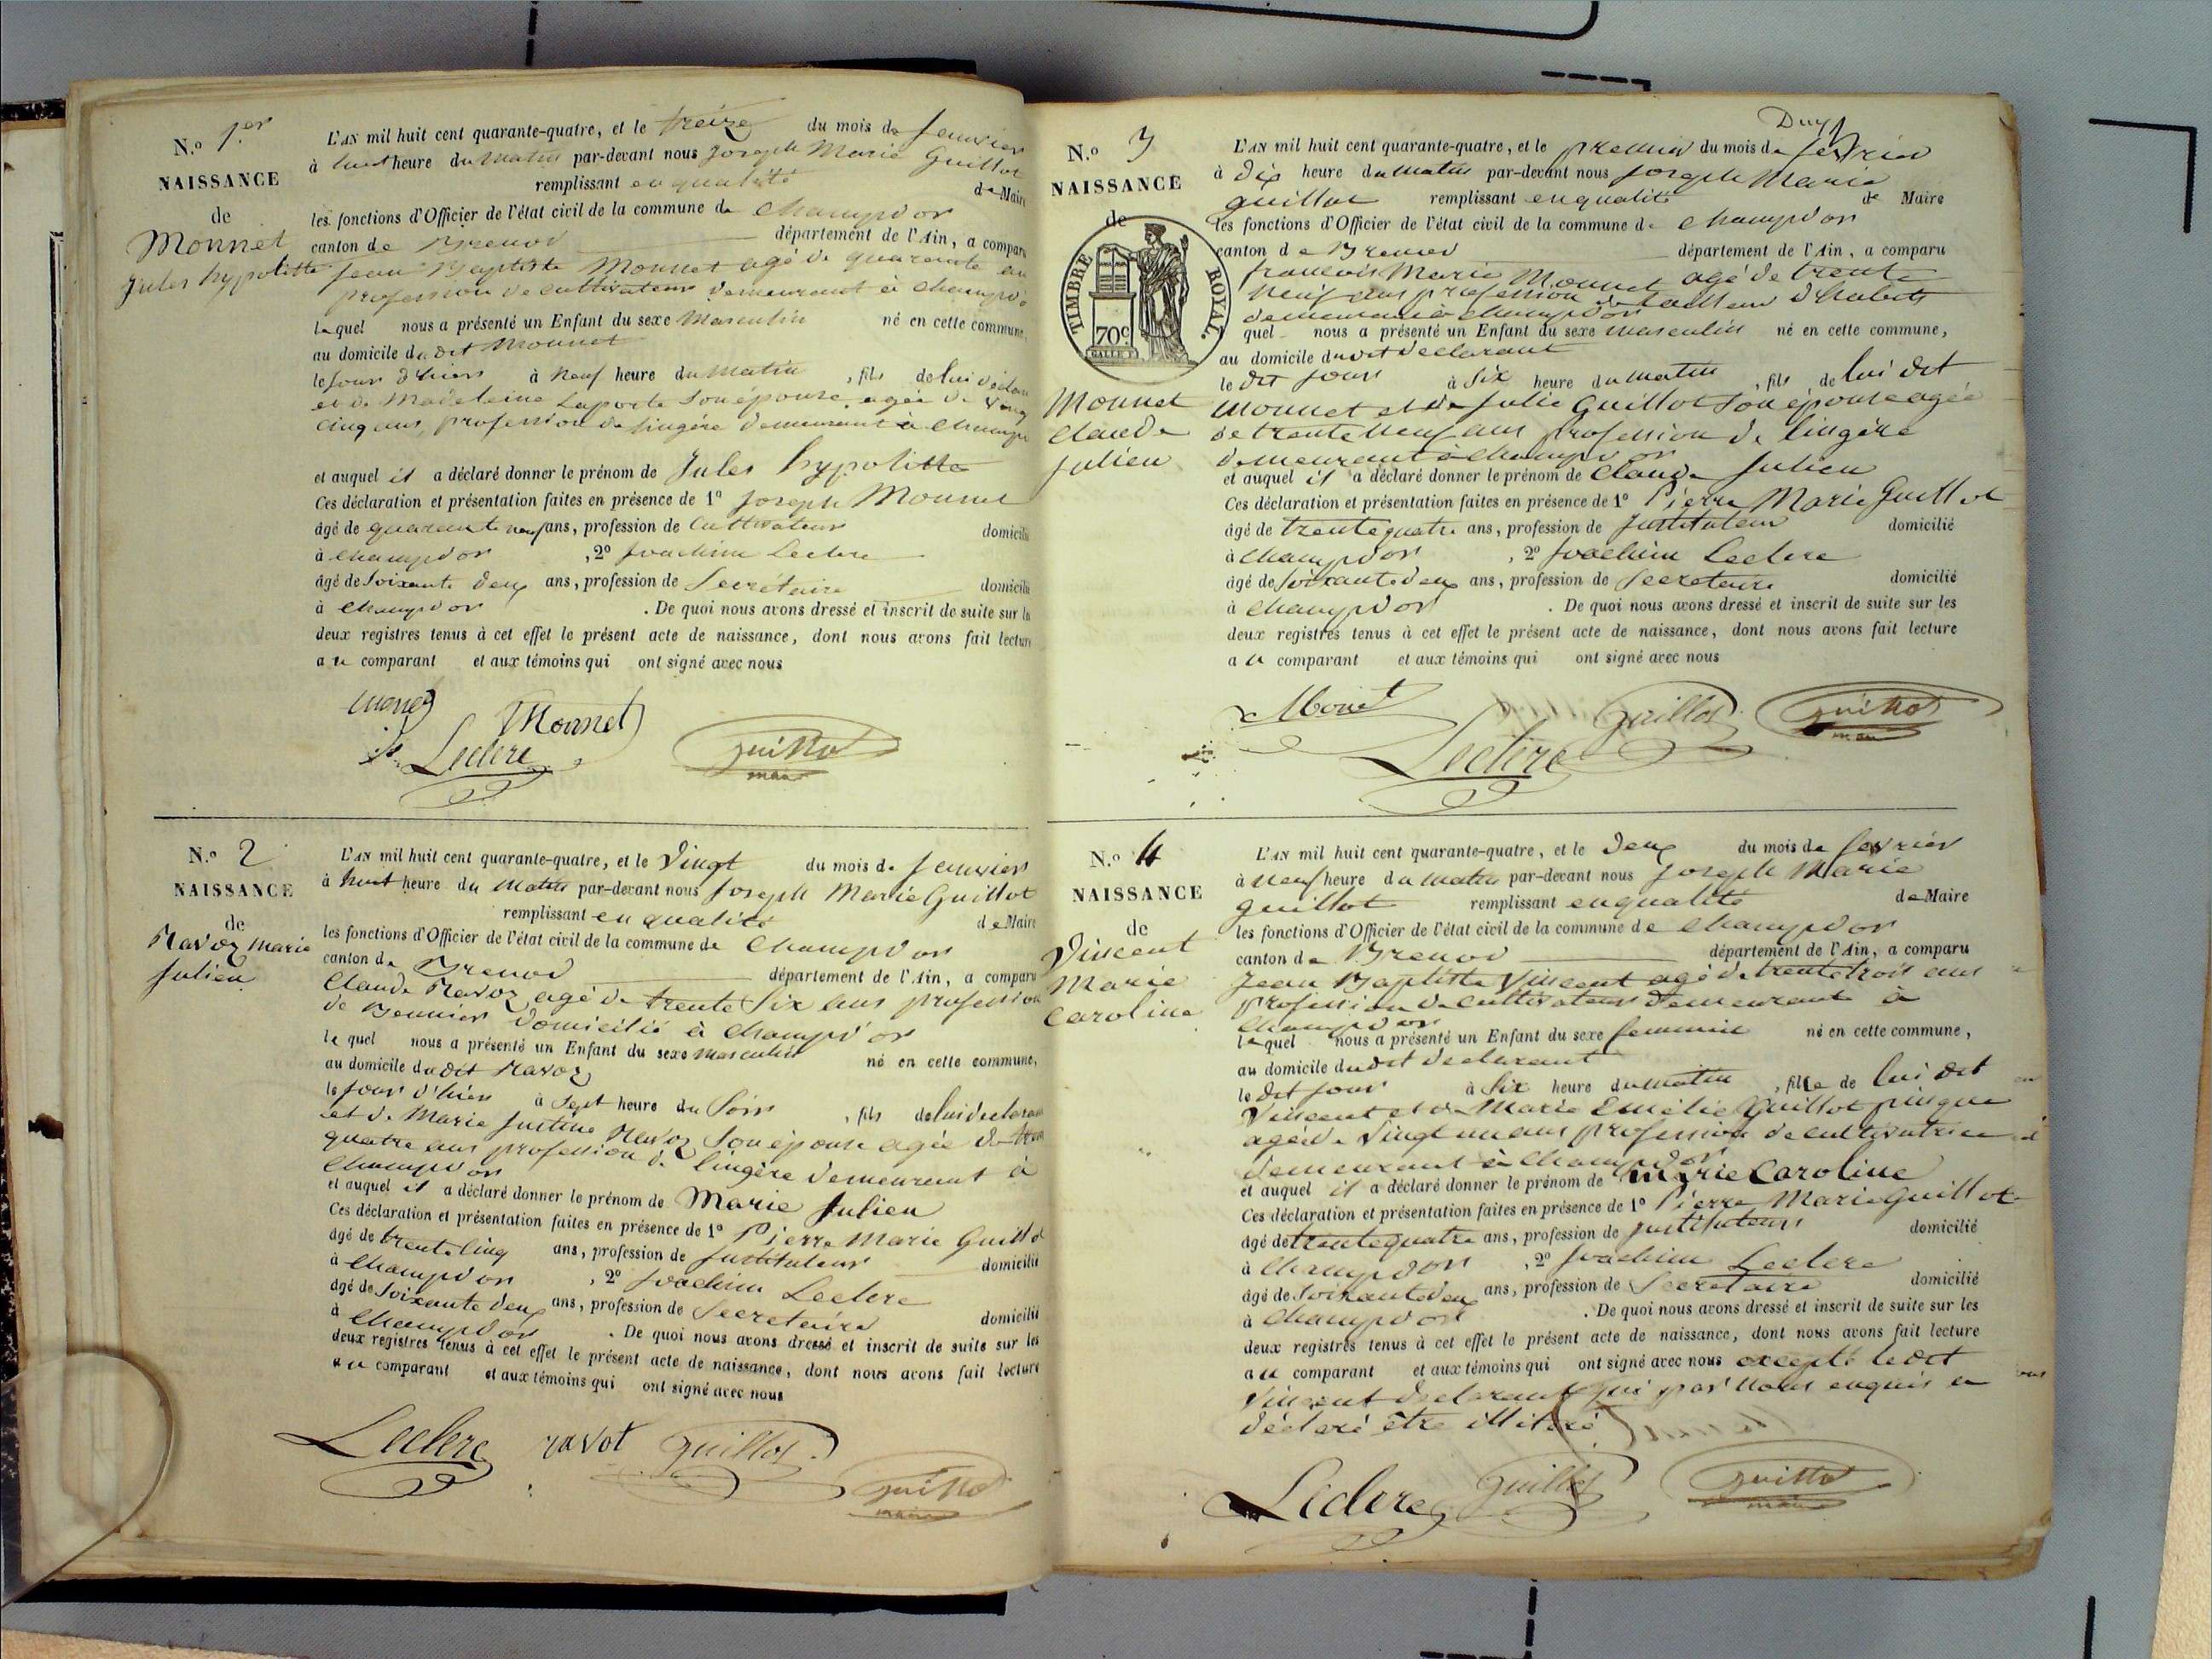 N.o 1.er
NAISSANCE
de
Monnet
Jules hypolitte
L'AN mil huit cent quarante-quatre, et le treize du mois de Janvier
à huit heure du matin par-devant nous Joseph Marie Guillot
remplissant en qualité de Maire
les fonctions d'Officier de l'état civil de la commune de Champdor
canton de Brenod département de l'Ain, a comparu
Jean Baptiste Monnet agé de quarante an
profession de cultivateur demeurant à Champdo
lequel nous a présenté un Enfant du sexe Masculin né en cette commune,
au domicile du dit Monnet
le jour d'hier à neuf heure du matin, fils de lui déclar
et de Madeleine Laporte son épouse agée de vingt
cinq ans, profession de lingére demeurant à Champ
et auquel il a déclaré donner le prénom de Jules hypolitte
Ces déclaration et présentation faites en présence de 1º Joseph Monnet
âgé de quarante neuf ans, profession de Cultivateur domicilié
à Champdor, 2º Joachim Leclerc
âgé de Soixante deux ans, profession de Secrétaire domicilié
à Champdor. De quoi nous avons dressé et inscrit de suite sur le
deux registres tenus à cet effet le présent acte de naissance, dont nous avons fait lecture
au comparant et aux témoins qui ont signé avec nous
monet
Monnet
Leclerc
Guillot
maire
N.o 2
NAISSANCE
de
Ravoz Marie
Julien
L'AN mil huit cent quarante-quatre, et le Vingt du mois de Janvier
à huit heure du Matin par-devant nous Joseph Marie Guillot
remplissant en qualité de Maire
les fonctions d'Officier de l'état civil de la commune de Champdor
canton de Brenod département de l'Ain, a comparu
Claude Ravoz agé de trente Six ans profession
de domicilié à Champdor
le quel nous a présenté un Enfant du sexe masculin né en cette commune,
au domicile du dit Ravoz
le jour d'hier à Sept heure du Soir, fils de lui declarant
et de Marie Justine Ravoz Son épouse agée de tren
quatre ans profession de lingére demeurant à
Champdor
et auquel il a déclaré donner le prénom de Marie Julien
Ces déclaration et présentation faites en présence de 1º Pierre Marie Guillot
âgé de trente cinq ans, profession de Instituteur domicilié
à Champdor, 2º Joachim Leclerc
âgé de Soixante deux ans, profession de Secretaire domicilié
à Champdor. De quoi nous avons dressé et inscrit de suite sur les
deux registres tenus à cet effet le présent acte de naissance, dont nous avons fait lecture
au comparant et aux témoins qui ont signé avec nous
Leclerc ravot Guillot
Guillot
maire
N.o 3
NAISSANCE
de
TIMBRE ROYAL.
70c
Monnet
Claude
Julien
L'AN mil huit cent quarante-quatre, et le premier du mois de fevrier
à dix heure du matin par-devant nous Joseph Marie
Guillot remplissant en qualité de Maire
les fonctions d'Officier de l'état civil de la commune de Champdor
canton de Brenod département de l'Ain, a comparu
francois Marie Monnet agé de trente
neuf ans profession de tailleur d'habits
demeurant à Champdor
quel nous a présenté un Enfant du sexe masculin né en cette commune,
au domicile du dit declarant
le dit jour à Six heure du matin, fils de lui dit
Monnet et de Julie Guillot Son épouse agée
de trente neuf ans profession de lingére
demeurant à Champdor
et auquel il a déclaré donner le prénom de Claude Julien
Ces déclaration et présentation faites en présence de 1º Pierre Marie Guillot
âgé de trente quatre ans, profession de Instituteur domicilié
à Champdor, 2º Joachim Leclerc
âgé de Soixante deux ans, profession de Secretaire domicilié
à Champdor. De quoi nous avons dressé et inscrit de suite sur les
deux registres tenus à cet effet le présent acte de naissance, dont nous avons fait lecture
au comparant et aux témoins qui ont signé avec nous
Monet
Leclerc
Guillot
Guillot
maire
N.o 4
NAISSANCE
de
Vincent
Marie
Caroline
L'AN mil huit cent quarante-quatre, et le deux du mois de fevrier
à neuf heure du matin par-devant nous Joseph Marie
Guillot remplissant en qualité de Maire
les fonctions d'Officier de l'état civil de la commune de Champdor
canton de Brenod département de l'Ain, a comparu
Jean Baptiste Vincent agé de trente trois ans
profession de cultivateur demeurant à
Champdor
lequel nous a présenté un Enfant du sexe feminin né en cette commune,
au domicile du dit declarant
le dit jour à Six heure du matin, fille de lui dit
Vincent et de Marie Emélie Guillot
agée de Vingt un ans profession de cultivatrice
demeurant à Champdor
et auquel il a déclaré donner le prénom de Marie Caroline
Ces déclaration et présentation faites en présence de 1º Pierre Marie Guillot
âgé de trente quatre ans, profession de Instituteur domicilié
à Champdor, 2º Joachim Leclerc
âgé de Soixante deux ans, profession de Secretaire domicilié
à Champdor. De quoi nous avons dressé et inscrit de suite sur les
deux registres tenus à cet effet le présent acte de naissance, dont nous avons fait lecture
au comparant et aux témoins qui ont signé avec nous excepté ledit
Vincent declarant qui par nous enquis a
déclaré être illitéré
Leclerc Guillot Guillot
maire